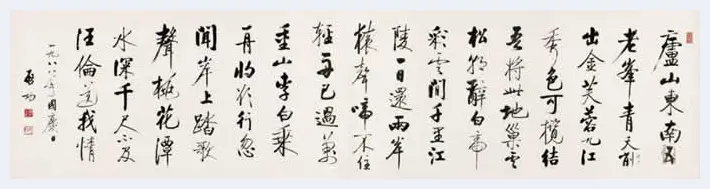 廬山東南五
老峯青天削
出金芙蓉九江
秀色可攬結
吾將此地巢雲
松朝辭白帝
彩雲間千里江
陵一日還兩岸
猿聲啼不住
輕舟已過萬
重山李白乘
舟將欲行忽
聞岸上踏歌
聲桃花潭
水深千尺不及
汪倫送我情
一九八八年國慶日
啟功